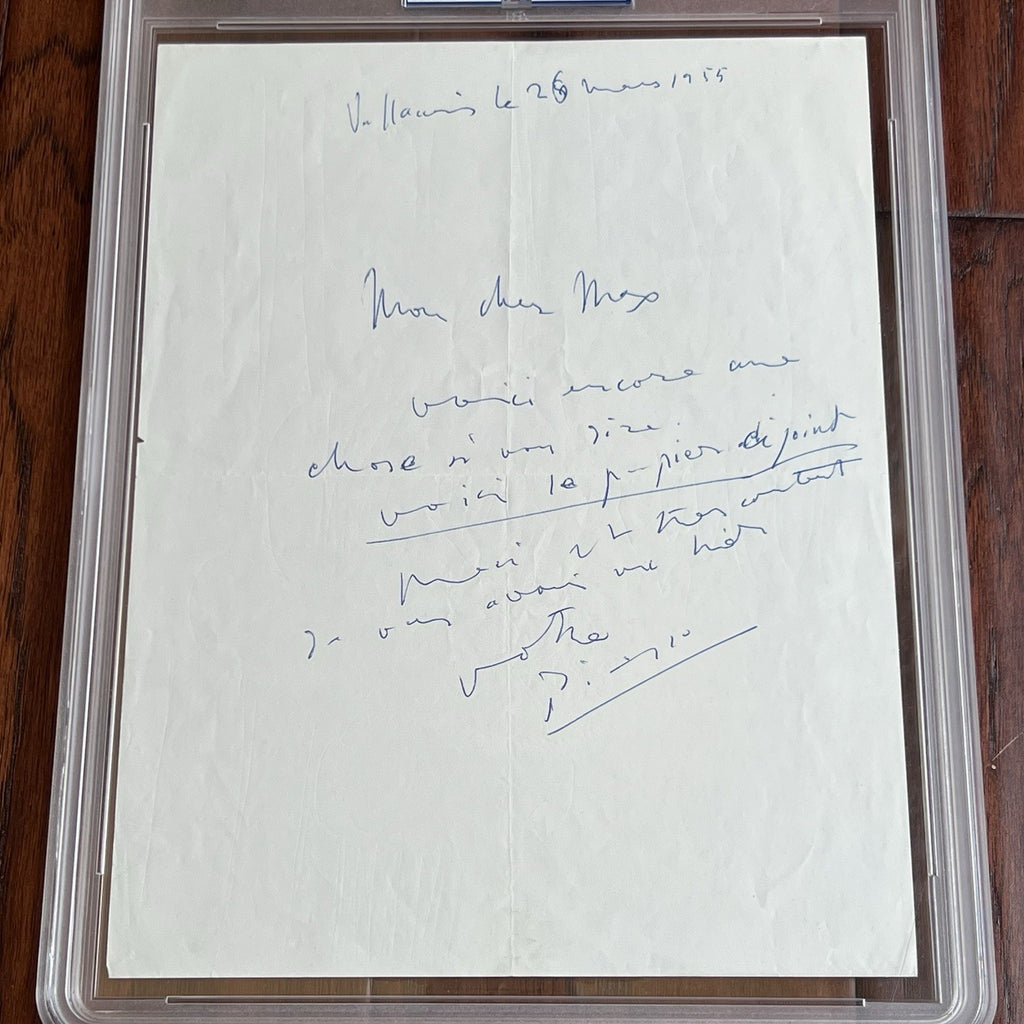 Vallauris le 26 mars 1955
Mon cher Max
voici encore une
chose à vous dire.
voici le papier ci joint
merci et très content
de vous avoir vu hier
votre
Picasso